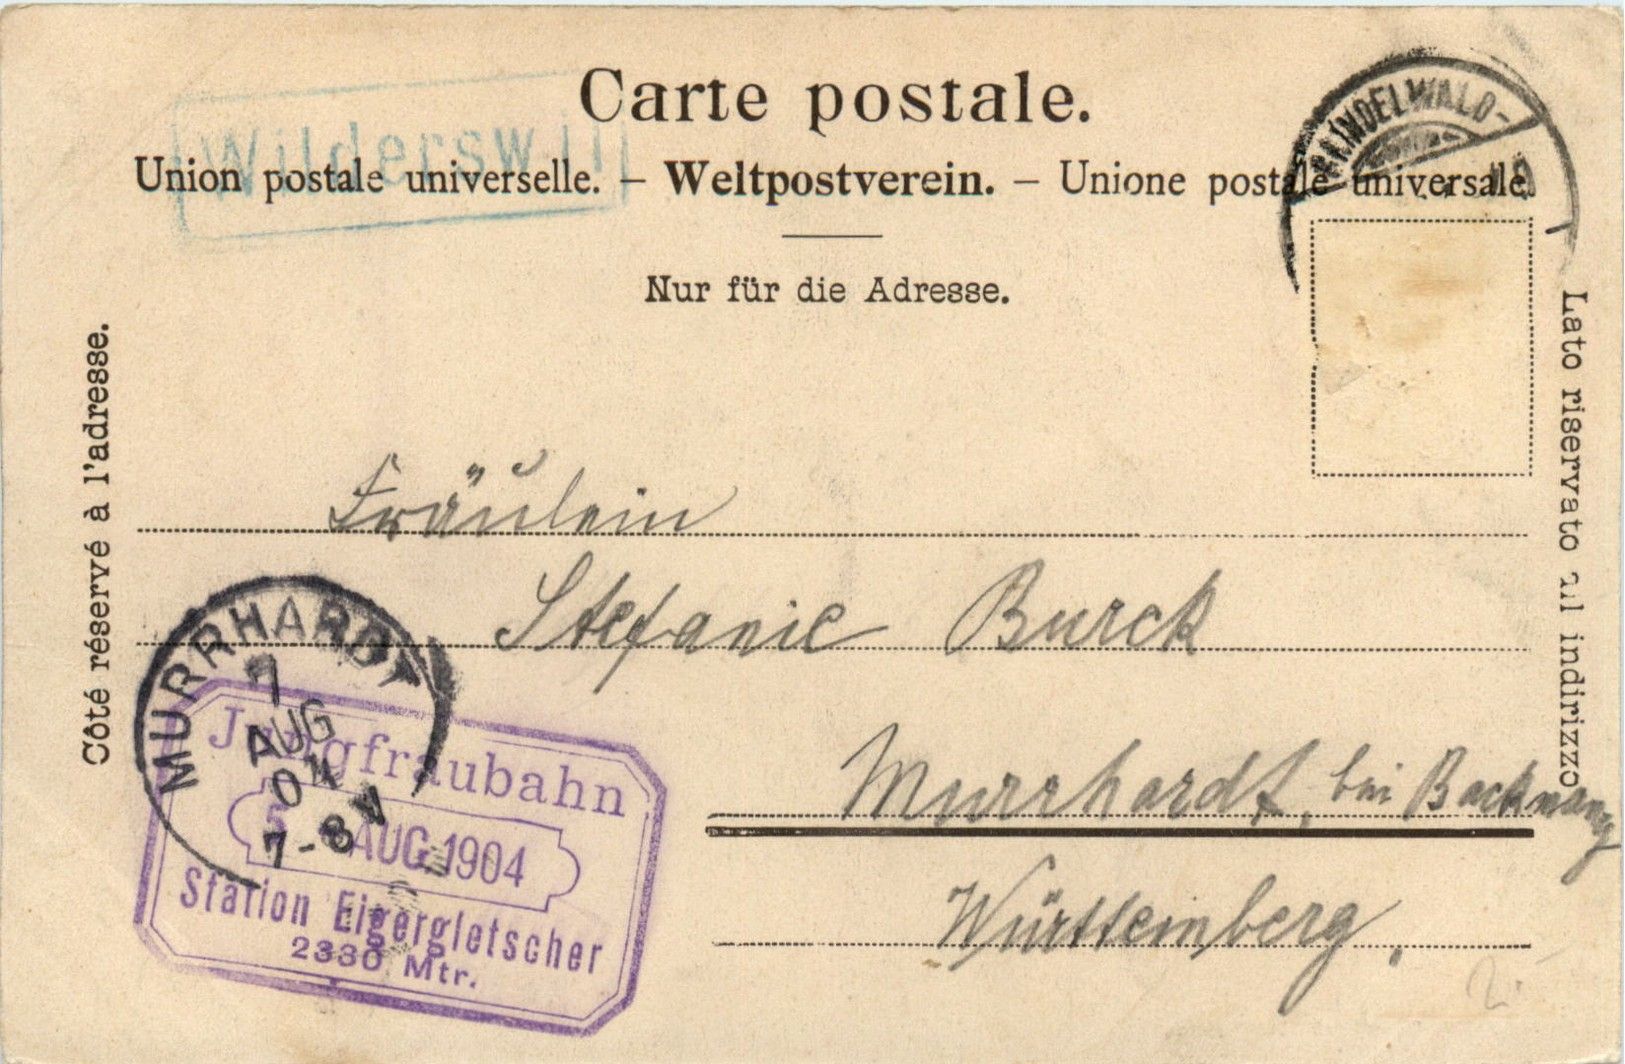 Carte postale.
Wilderswil
Union postale universelle. – Weltpostverein. – Unione postale universale.
Nur für die Adresse.
Côté réservé à l'adresse.
Lato riservato all indirizzo
Fräulein
Stefanie Burck
Murrhardt, bei Backnang
Württemberg.
MURRHARDT
7
AUG
04
7-8V
Jungfraubahn
5 AUG 1904
Station Eigergletscher
2330 Mtr.